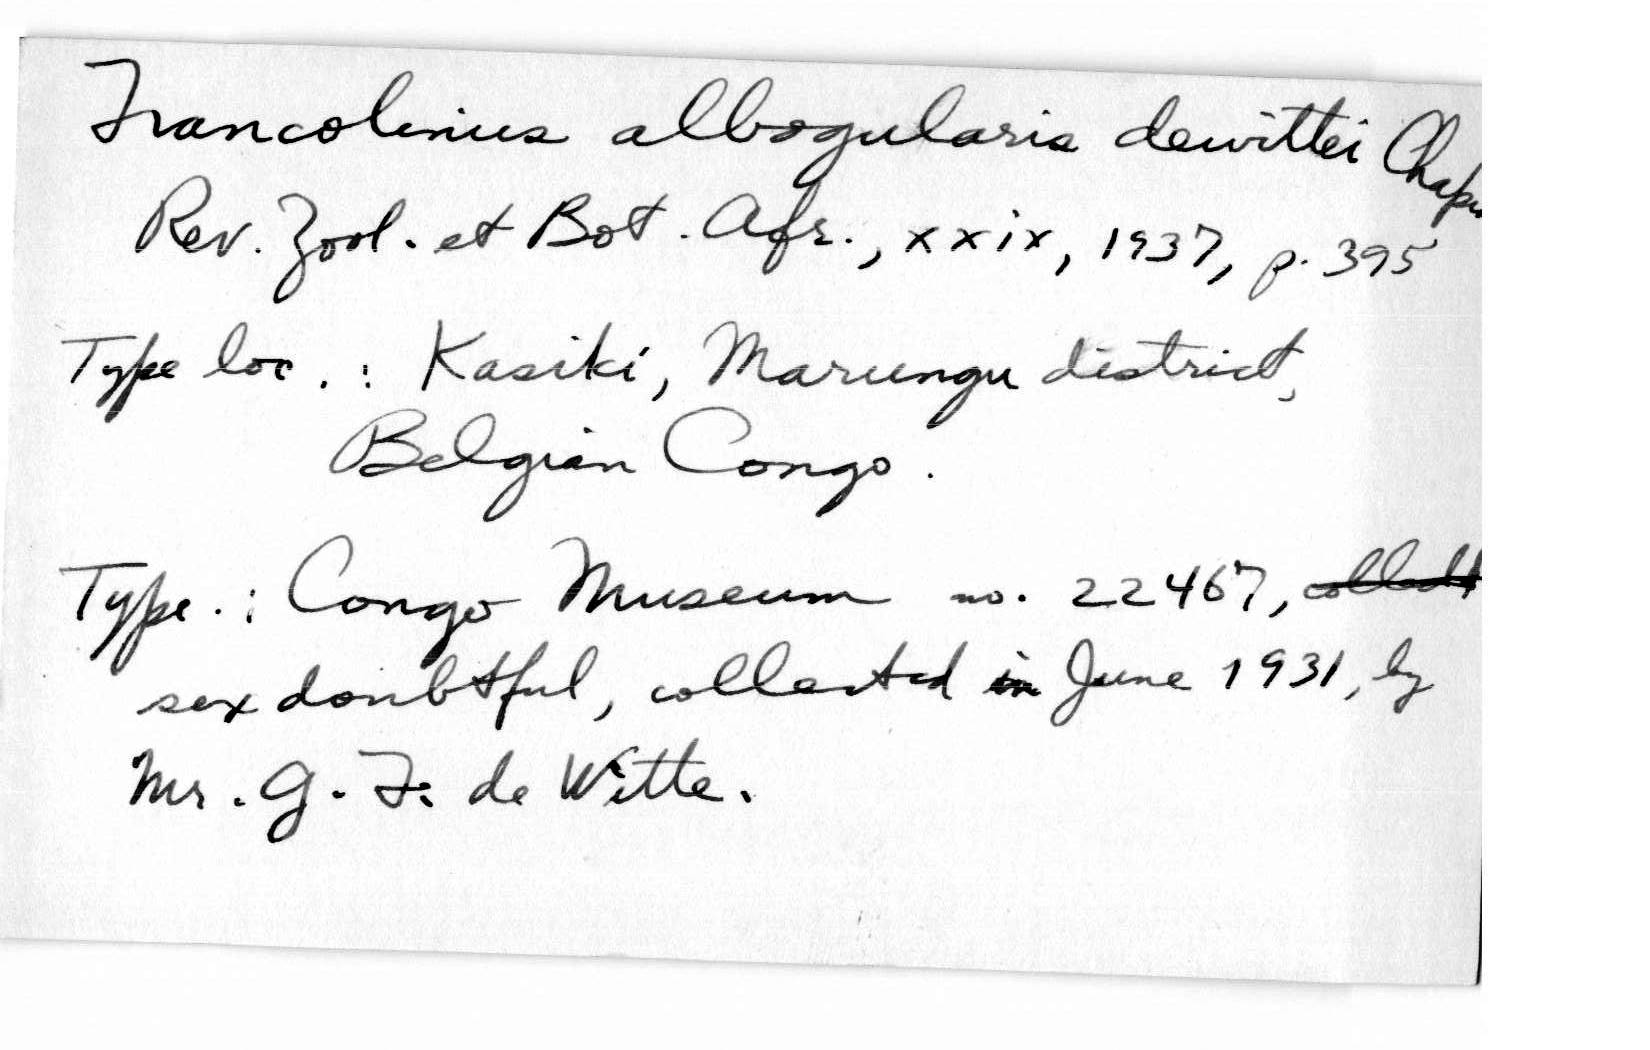 Francolinus albogularis dewittei Chapin
Rev. Zool. et Bot. Afr., xxix, 1937, p. 395
Type loc. : Kasiki, Marungu district,
Belgian Congo.
Type. : Congo Museum no. 22467,
sex doubtful, collected in June 1931, by
Mr. G. F. de Witte.